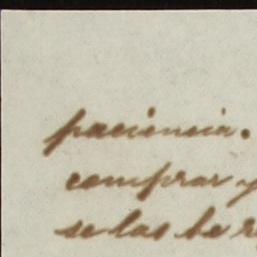 paciencia.
comprar y
se las he